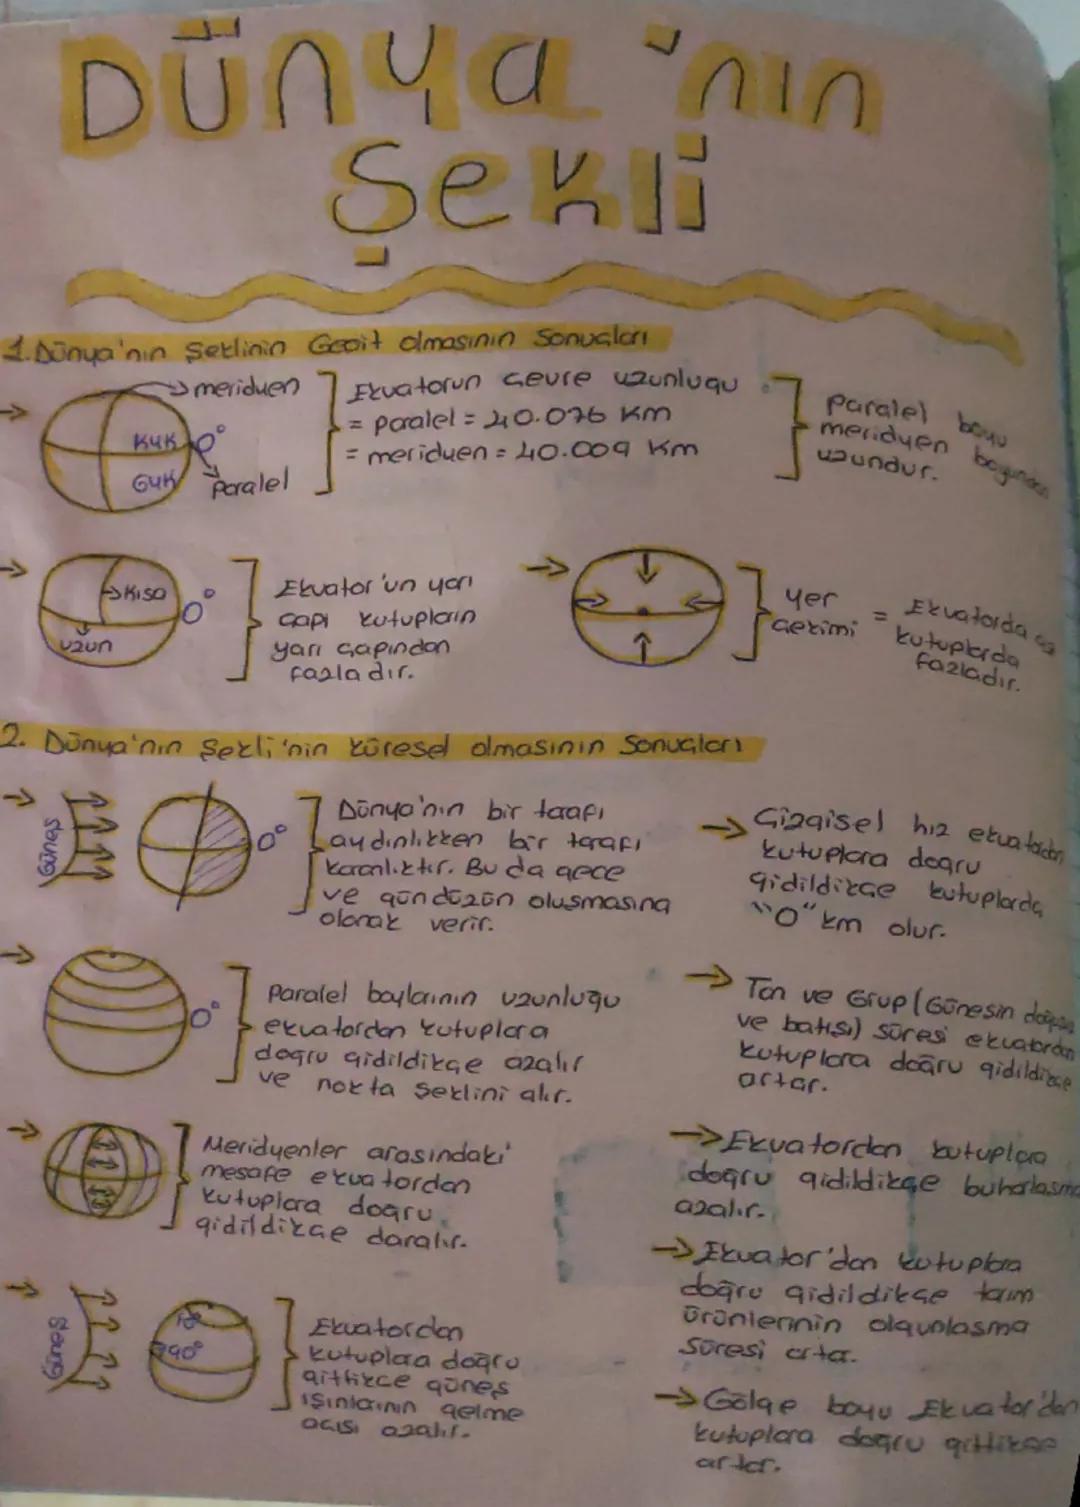 Dünya'nın
Şekli
1. Dünya'nın Şeklinin Geoit olmasının Sonuçları
meridyen
KYK
GYK
0°
Paralel
Ekvatorun çevre uzunluğu
= paralel = 40.076 Km
= meridyen = 40.009 Km
Paralel boyu
meridyen boyundan
uzundur.
Kısa
uzun
0°
Ekvator'un yarı
çapı kutupların
yarı çapından
fazladır.
Yer
çekimi
= Ekvatorda az
kutuplarda
fazladır.
2. Dünya'nın Şekli'nin küresel olmasının Sonuçları
Güneş
0°
Dünya'nın bir tarafı
aydınlıkken bir tarafı
karanlıktır. Bu da gece
ve gündüzün oluşmasına
olanak verir.
Çizgisel hız ekvatordan
kutuplara doğru
gidildikçe kutuplarda
"0" km olur.
0°
Paralel boylarının uzunluğu
ekvatordan kutuplara
doğru gidildikçe azalır
ve nokta şeklini alır.
Tan ve Grup (Güneşin doğuşu
ve batışı) süresi ekvatordan
kutuplara doğru gidildikçe
artar.
Meridyenler arasındaki
mesafe ekvatordan
kutuplara doğru
gidildikçe daralır.
Ekvatordan kutuplara
doğru gidildikçe buharlaşma
azalır.
Ekvator'dan kutuplara
doğru gidildikçe tarım
ürünlerinin olgunlaşma
süresi artar.
Güneş
90°
Ekvatordan
kutuplara doğru
gittikçe güneş
ışınlarının gelme
açısı azalır.
Gölge boyu Ekvator'dan
kutuplara doğru gittikçe
artar.